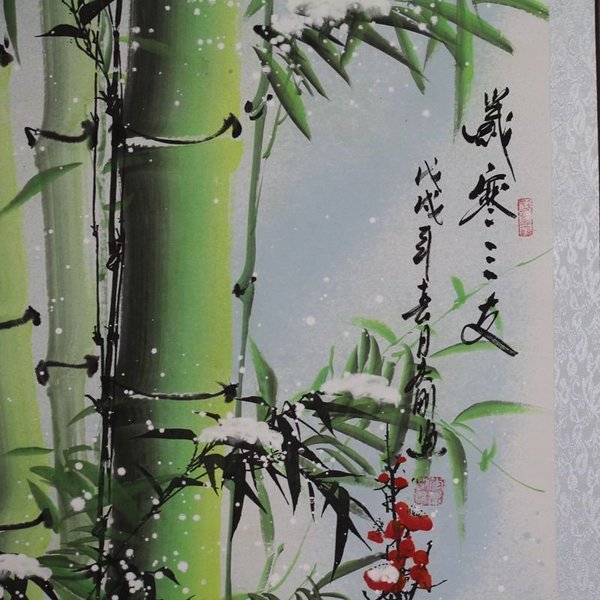 歲寒三友
戊戌年春月